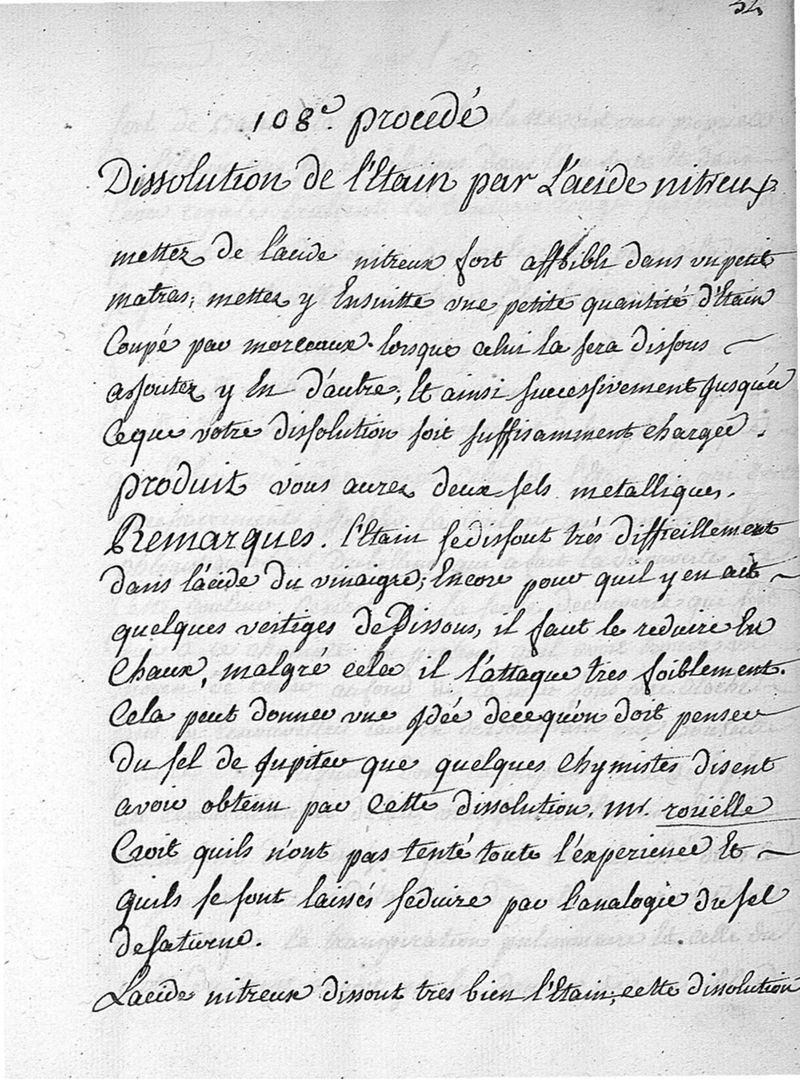 108e. procedé
Dissolution de l'Etain par L'acide nitreux
mettez de l'acide nitreux fort affoibli dans un petit
matras; mettez y Ensuitte une petite quantité d'Etain
Coupé par morceaux. lorsque celui la sera dissous
ajoutez y En d'autre, Et ainsi successivement Jusqu'a
ceque votre dissolution soit suffisamment chargée.
produit vous aurez deux sels metalliques.
Remarques. l'Etain se dissout trés difficillement
dans l'acide du vinaigre; Encore pour quil y en ait
quelques vestiges de Dissous, il faut le reduire En
Chaux, malgre cela il l'attaque tres foiblement.
Cela peut donner une Idée de ce qu'on doit penser
du sel de Jupiter que quelques Chymistes disent
avoir obtenu par Cette dissolution. mr. roüelle
Croit quils n'ont pas tenté toute l'experience Et
quils se sont laissés seduire par l'analogie du sel
de saturne.
L'acide nitreux dissout tres bien l'Etain; cette dissolution